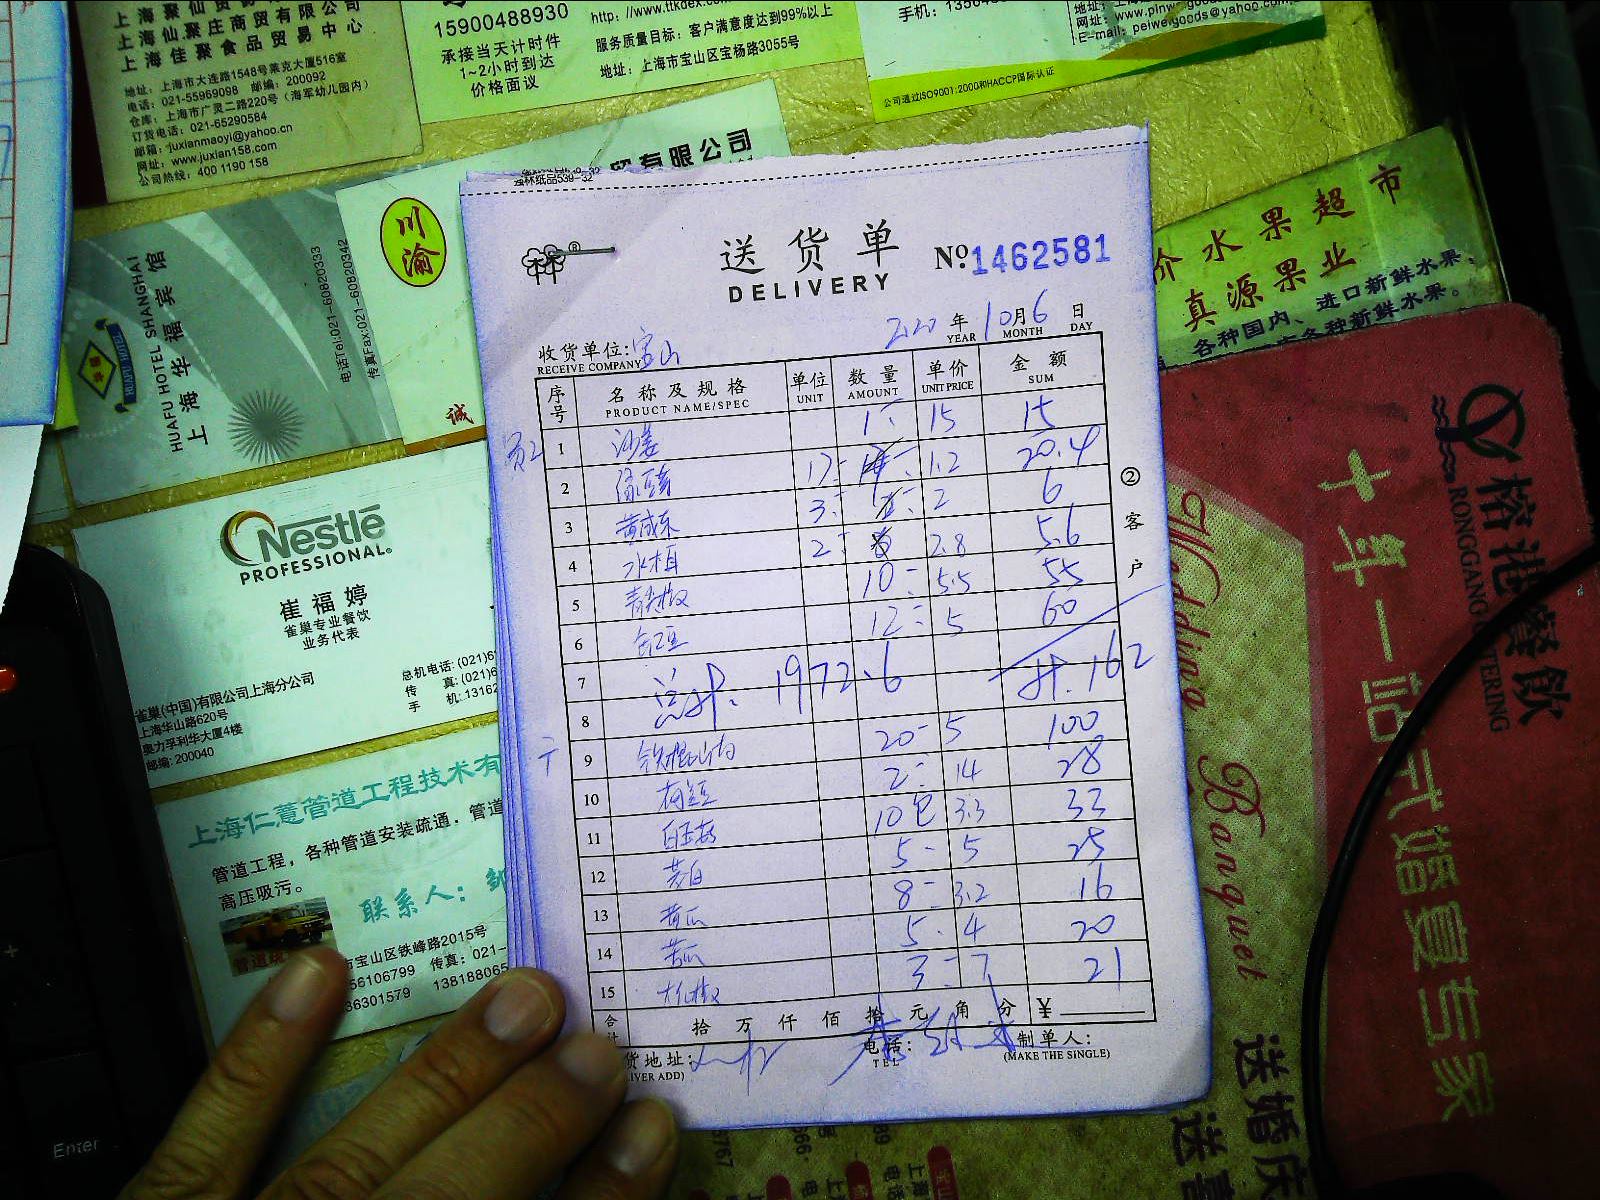 上海聚仙贸易
上海仙聚庄商贸有限公司
上海佳聚食品贸易中心
地址：上海市大连路1548号莱克大厦516室
电话：021-55969098 邮编：200092
仓库：上海市广灵二路220号（海军幼儿园内）
订货电话：021-65290584
邮箱：juxianmaoyi@yahoo.cn
网址：www.juxian158.com
公司热线：400 1190 158
15900488930
承接当天计时件
1~2小时到达
价格面议
http://www.ttkdex.com
服务质量目标：客户满意度达到99%以上
地址：上海市宝山区宝杨路3055号
手机：
E-mail：peiwe.goods@yahoo.com
公司通过ISO9001:2000和HACCP国际认证
贸有限公司
强林纸品539-32
川渝
诚
上海华福宾馆
HUAFU HOTEL SHANGHAI
电话Tel:021-60820333
传真Fax:021-60820342
Nestlé
PROFESSIONAL
崔福婷
雀巢专业餐饮
业务代表
雀巢(中国)有限公司上海分公司
上海华山路620号
奥力孚利华大厦4楼
邮编: 200040
总机电话: (021)6
传 真: (021)6
手 机: 13162
上海仁薏管道工程技术有
管道工程，各种管道安装疏通．管道
高压吸污。
联系人：
市宝山区铁峰路2015号
56106799 传真：021-
36301579 138188065
送货单
DELIVERY
№ 1462581
2020 年 10 月 6 日
YEAR MONTH DAY
收货单位: 宝山
RECEIVE COMPANY
序号 名称及规格 单位 数量 单价 金额
PRODUCT NAME/SPEC UNIT AMOUNT UNIT PRICE SUM
1 沙姜 1 15 15
2 绿豆芽 17 1.2 20.4
3 3 2 6
4 2 2.8 5.6
5 青尖椒 10 5.5 55
6 缸豆 12 5 60
7 总计: 1972.6 计.162
8
9 铁棍山药 20 5 100
10 2 14 28
11 白玉菇 10包 3.3 33
12 茭白 5 5 25
13 黄瓜 8 3.2 16
14 苦瓜 5 4 20
15 3 7 21
合计 拾 万 仟 佰 拾 元 角 分 ¥
货地址: 电话: 制单人:
TEL (MAKE THE SINGLE)
②客户
价水果超市
真源果业
各种国内、进口新鲜水果，
各种新鲜水果。
榕港餐飲
RONGGANG CATERING
十年一
式婚宴专家
Wedding Banquet
送婚庆
送喜
Enter